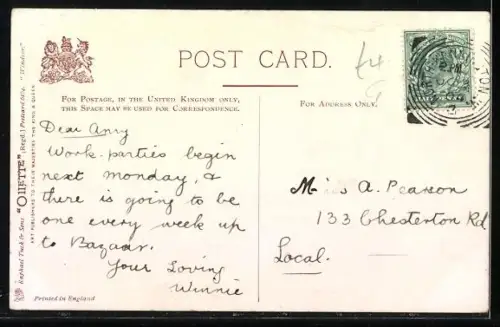 POST CARD.
£4
FOR POSTAGE, IN THE UNITED KINGDOM ONLY,
THIS SPACE MAY BE USED FOR CORRESPONDENCE.
FOR ADDRESS ONLY.
Dear Amy
Work-parties begin
next monday, &
there is going to be
one every week up
to Bazaar.
Your Loving
Winnie
Miss A. Pearson
133 Chesterton Rd
Local.
Raphael Tuck & Sons' "OILETTE" (Regd.) Postcard 6219. "Windsor."
ART PUBLISHERS TO THEIR MAJESTIES THE KING & QUEEN.
Printed in England